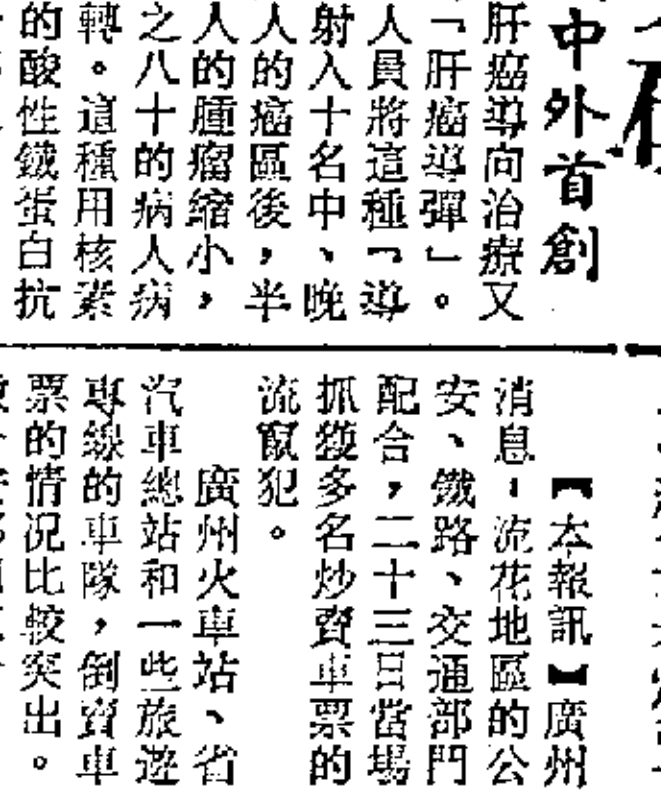 中外首創
肝癌導向治療又
「肝癌導彈」。
人員將這種「導
射入十名中、晚
人的癌區後，半
人的腫瘤縮小，
之八十的病人病
轉。這種用核素
的酸性鐵蛋白抗
【本報訊】廣州
消息：流花地區的公
安、鐵路、交通部門
配合，二十三日當場
抓獲多名炒賣車票的
流竄犯。
廣州火車站、省
汽車總站和一些旅遊
專線的車隊，倒賣車
票的情況比較突出。